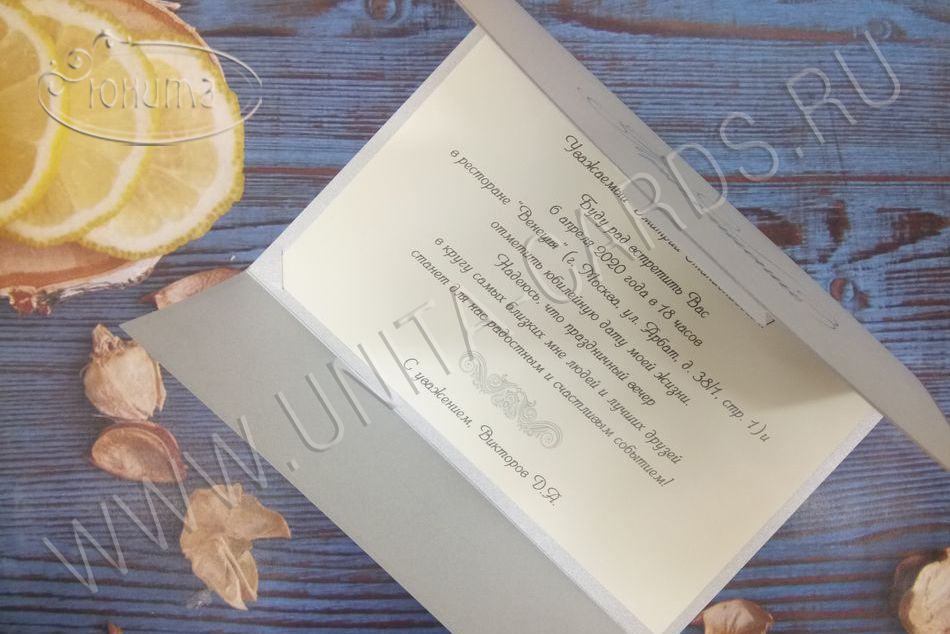 Юнита
WWW.UNITA-CARDS.RU
Уважаемый
Буду рад встретить Вас
6 апреля 2020 года в 18 часов
в ресторане "Венеция" (г. Москва, ул. Арбат, д. 38/1, стр. 1) и
отметить юбилейную дату моей жизни.
Надеюсь, что праздничный вечер
в кругу самых близких мне людей и лучших друзей
станет для нас радостным и счастливым событием!
С уважением, Викторов Д.А.